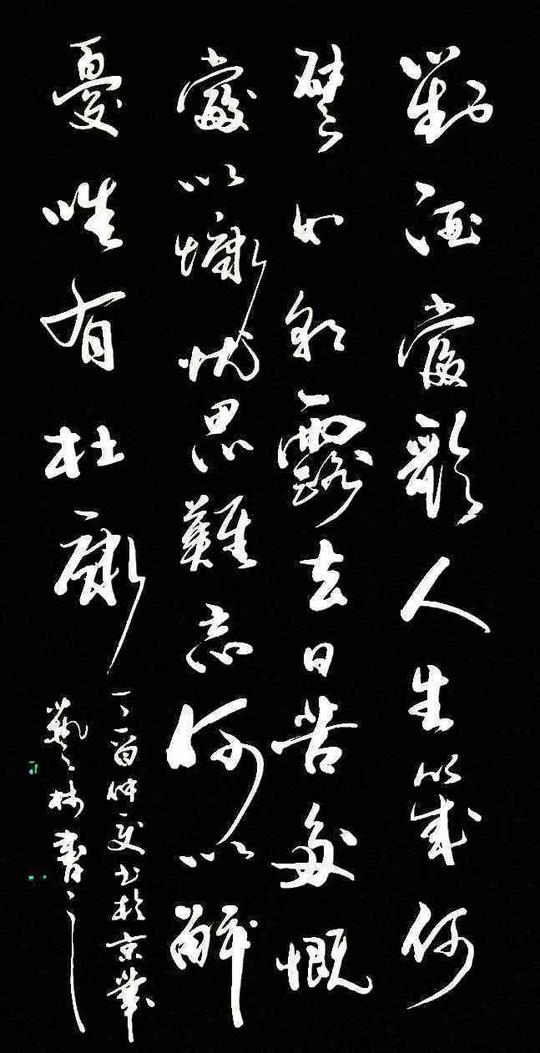 對酒當歌人生幾何
譬如朝露去日苦多慨
當以慷忧思難忘何以解
憂唯有杜康
丁酉仲夏书於京華
藝林書之